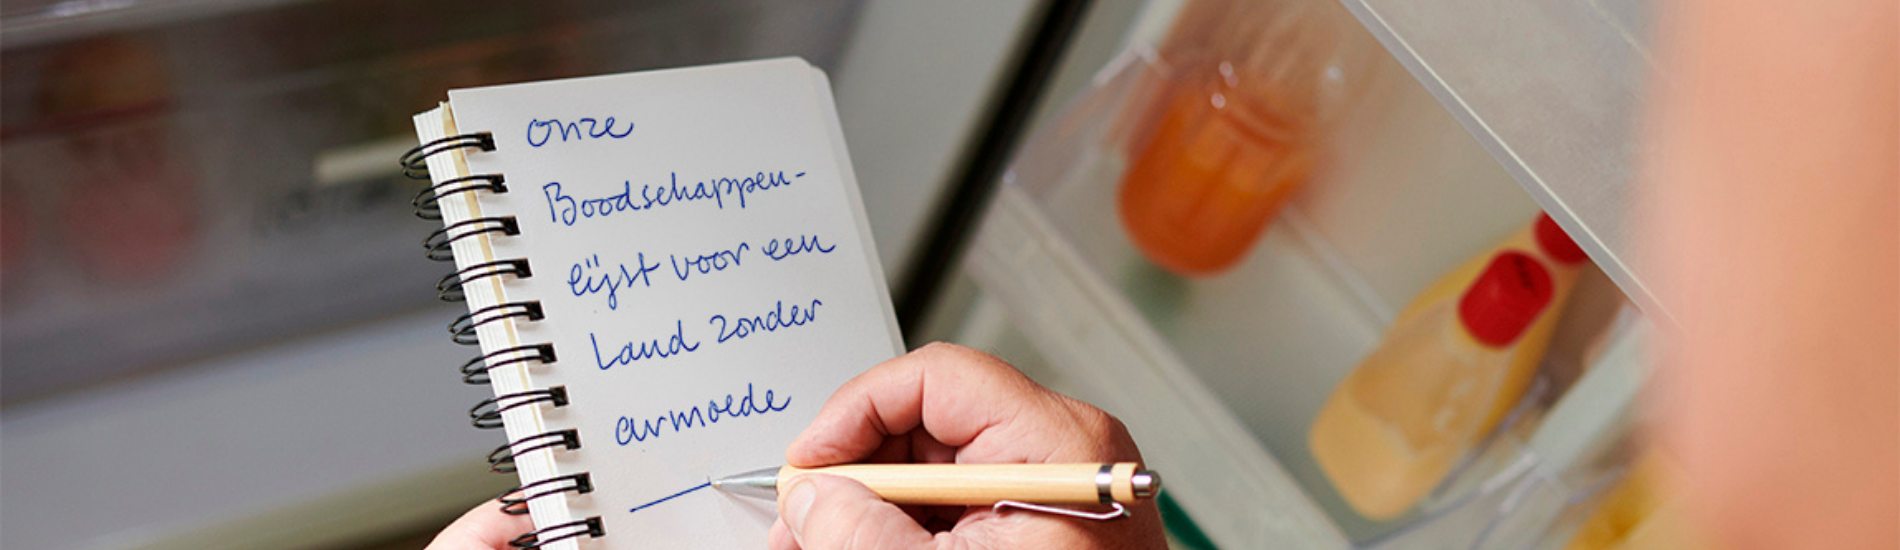 onze
Boodschappen-
lijst voor een
Land zonder
armoede